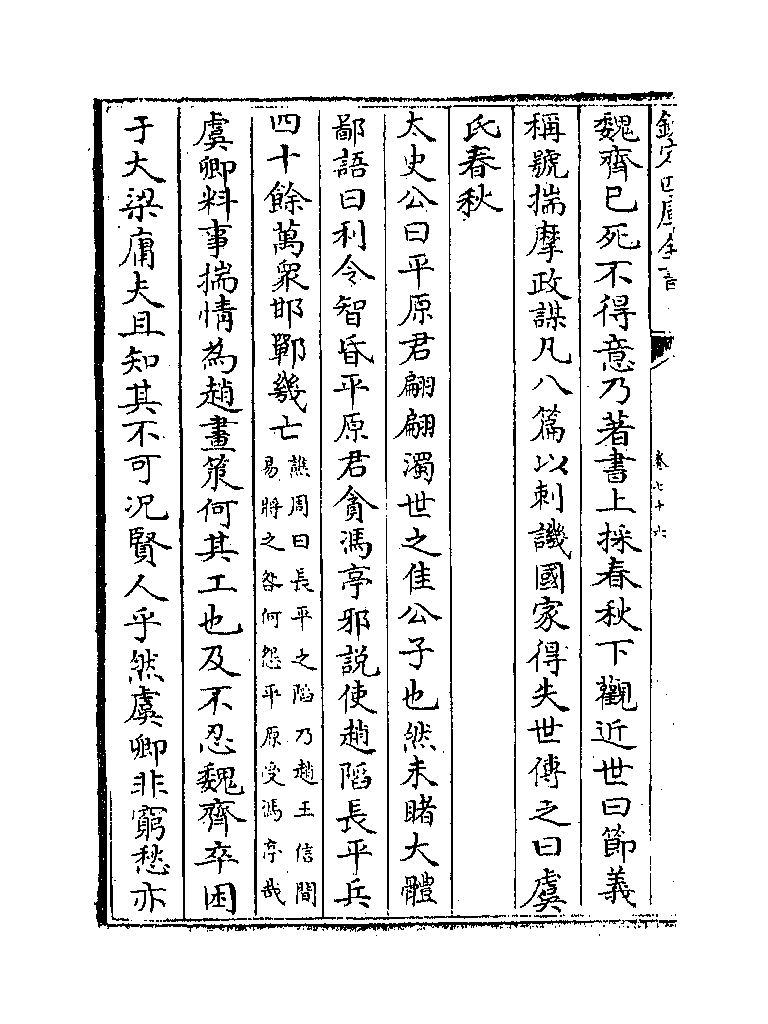 欽定四庫全書
卷七十六
魏齊已死不得意乃著書上採春秋下觀近世曰節義
稱號揣摩政謀凡八篇以刺譏國家得失世傳之曰虞
氏春秋
太史公曰平原君翩翩濁世之佳公子也然未睹大體
鄙語曰利令智昏平原君貪馮亭邪說使趙陷長平兵
四十餘萬眾邯鄲幾亡
譙周曰長平之陷乃趙王信間
易將之咎何怨平原受馮亭哉
虞卿料事揣情為趙畫策何其工也及不忍魏齊卒困
于大梁庸夫且知其不可況賢人乎然虞卿非窮愁亦